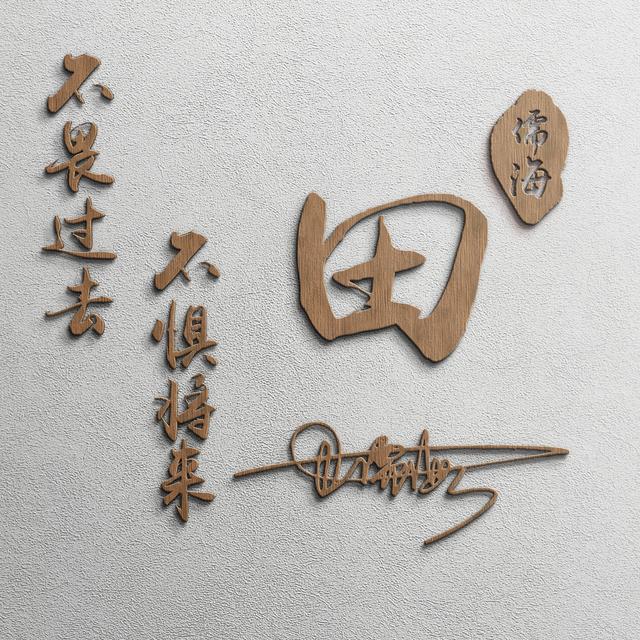 不畏过去
不惧将来
田
儒海